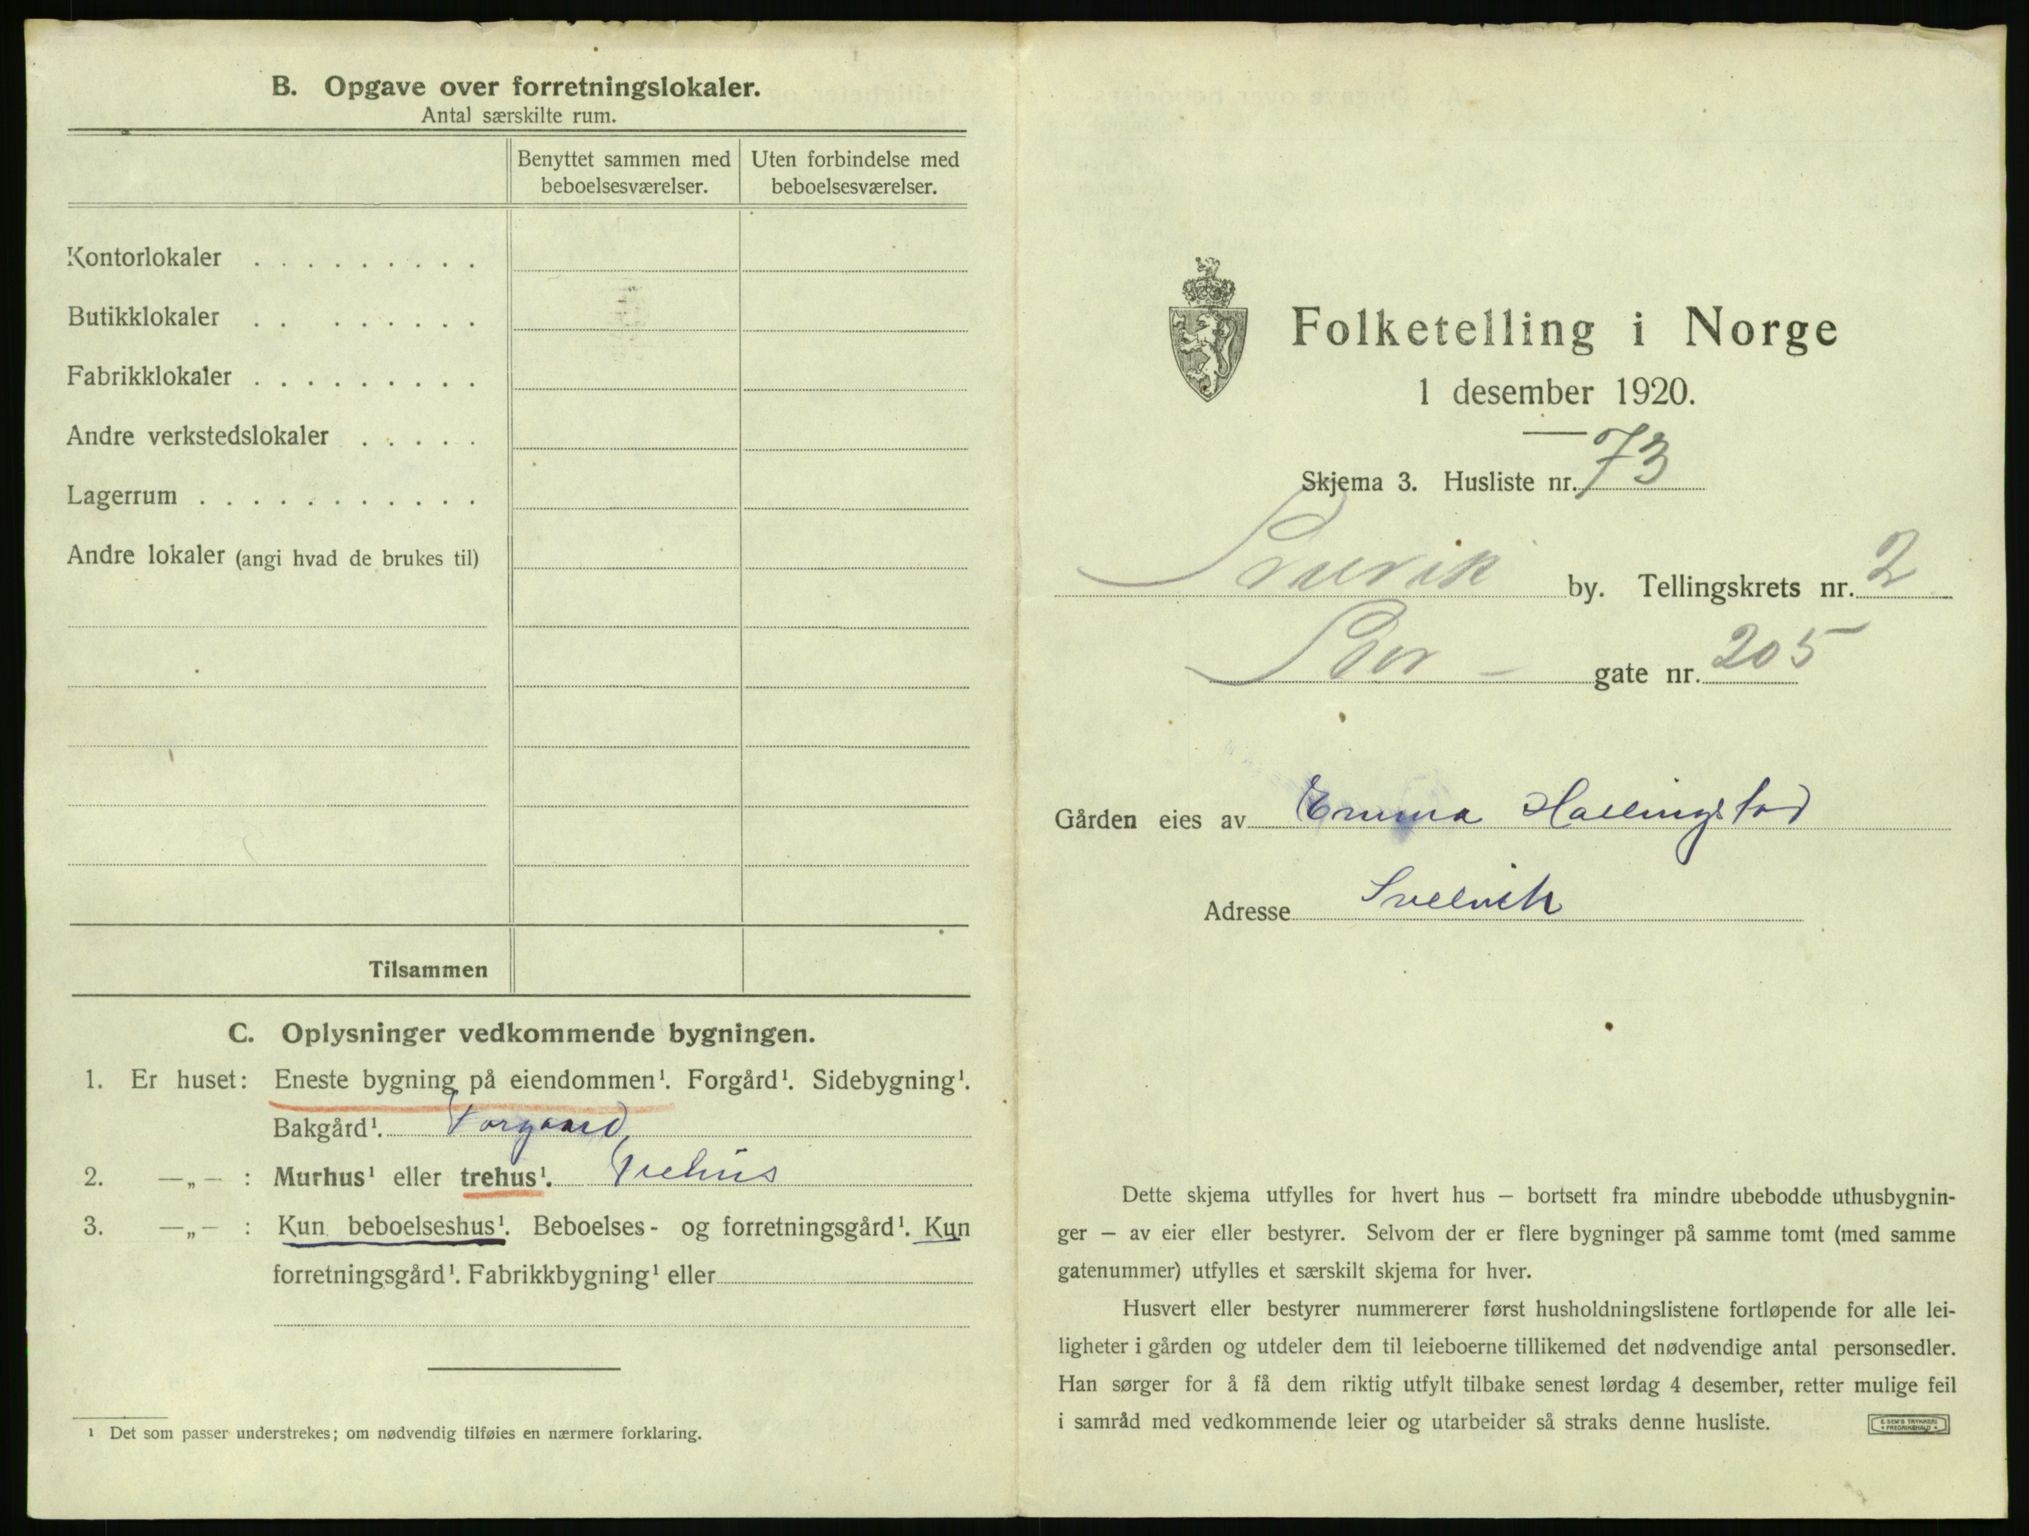 B. Opgave over forretningslokaler.
Antal særskilte rum.
Benyttet sammen med beboelsesværelser.
Uten forbindelse med beboelsesværelser.
Kontorlokaler . . . . . . . . .
Butikklokaler . . . . . . . .
Fabrikklokaler . . . . . . . . .
Andre verkstedslokaler . . . . .
Lagerrum . . . . . . . . . . .
Andre lokaler (angi hvad de brukes til)
Tilsammen
C. Oplysninger vedkommende bygningen.
1. Er huset: Eneste bygning på eiendommen¹. Forgård¹. Sidebygning¹.
Bakgård¹. Forgaard,
2. —„— : Murhus¹ eller trehus¹. Trehus
3. —„— : Kun beboelseshus¹. Beboelses- og forretningsgård¹. Kun
forretningsgård¹. Fabrikkbygning¹ eller
¹ Det som passer understrekes; om nødvendig tilføies en nærmere forklaring.
Folketelling i Norge
1 desember 1920.
Skjema 3. Husliste nr. 73
Svelvik by. Tellingskrets nr. 2
Stor- gate nr. 205
Gården eies av Emma Hallingstad
Adresse Svelvik
Dette skjema utfylles for hvert hus – bortsett fra mindre ubebodde uthusbygnin-
ger – av eier eller bestyrer. Selvom der er flere bygninger på samme tomt (med samme
gatenummer) utfylles et særskilt skjema for hver.
Husvert eller bestyrer nummererer først husholdningslistene fortløpende for alle lei-
ligheter i gården og utdeler dem til leieboerne tillikemed det nødvendige antal personsedler.
Han sørger for å få dem riktig utfylt tilbake senest lørdag 4 desember, retter mulige feil
i samråd med vedkommende leier og utarbeider så straks denne husliste.
E. SEM'S TRYKKERI
FREDRIKSHALD